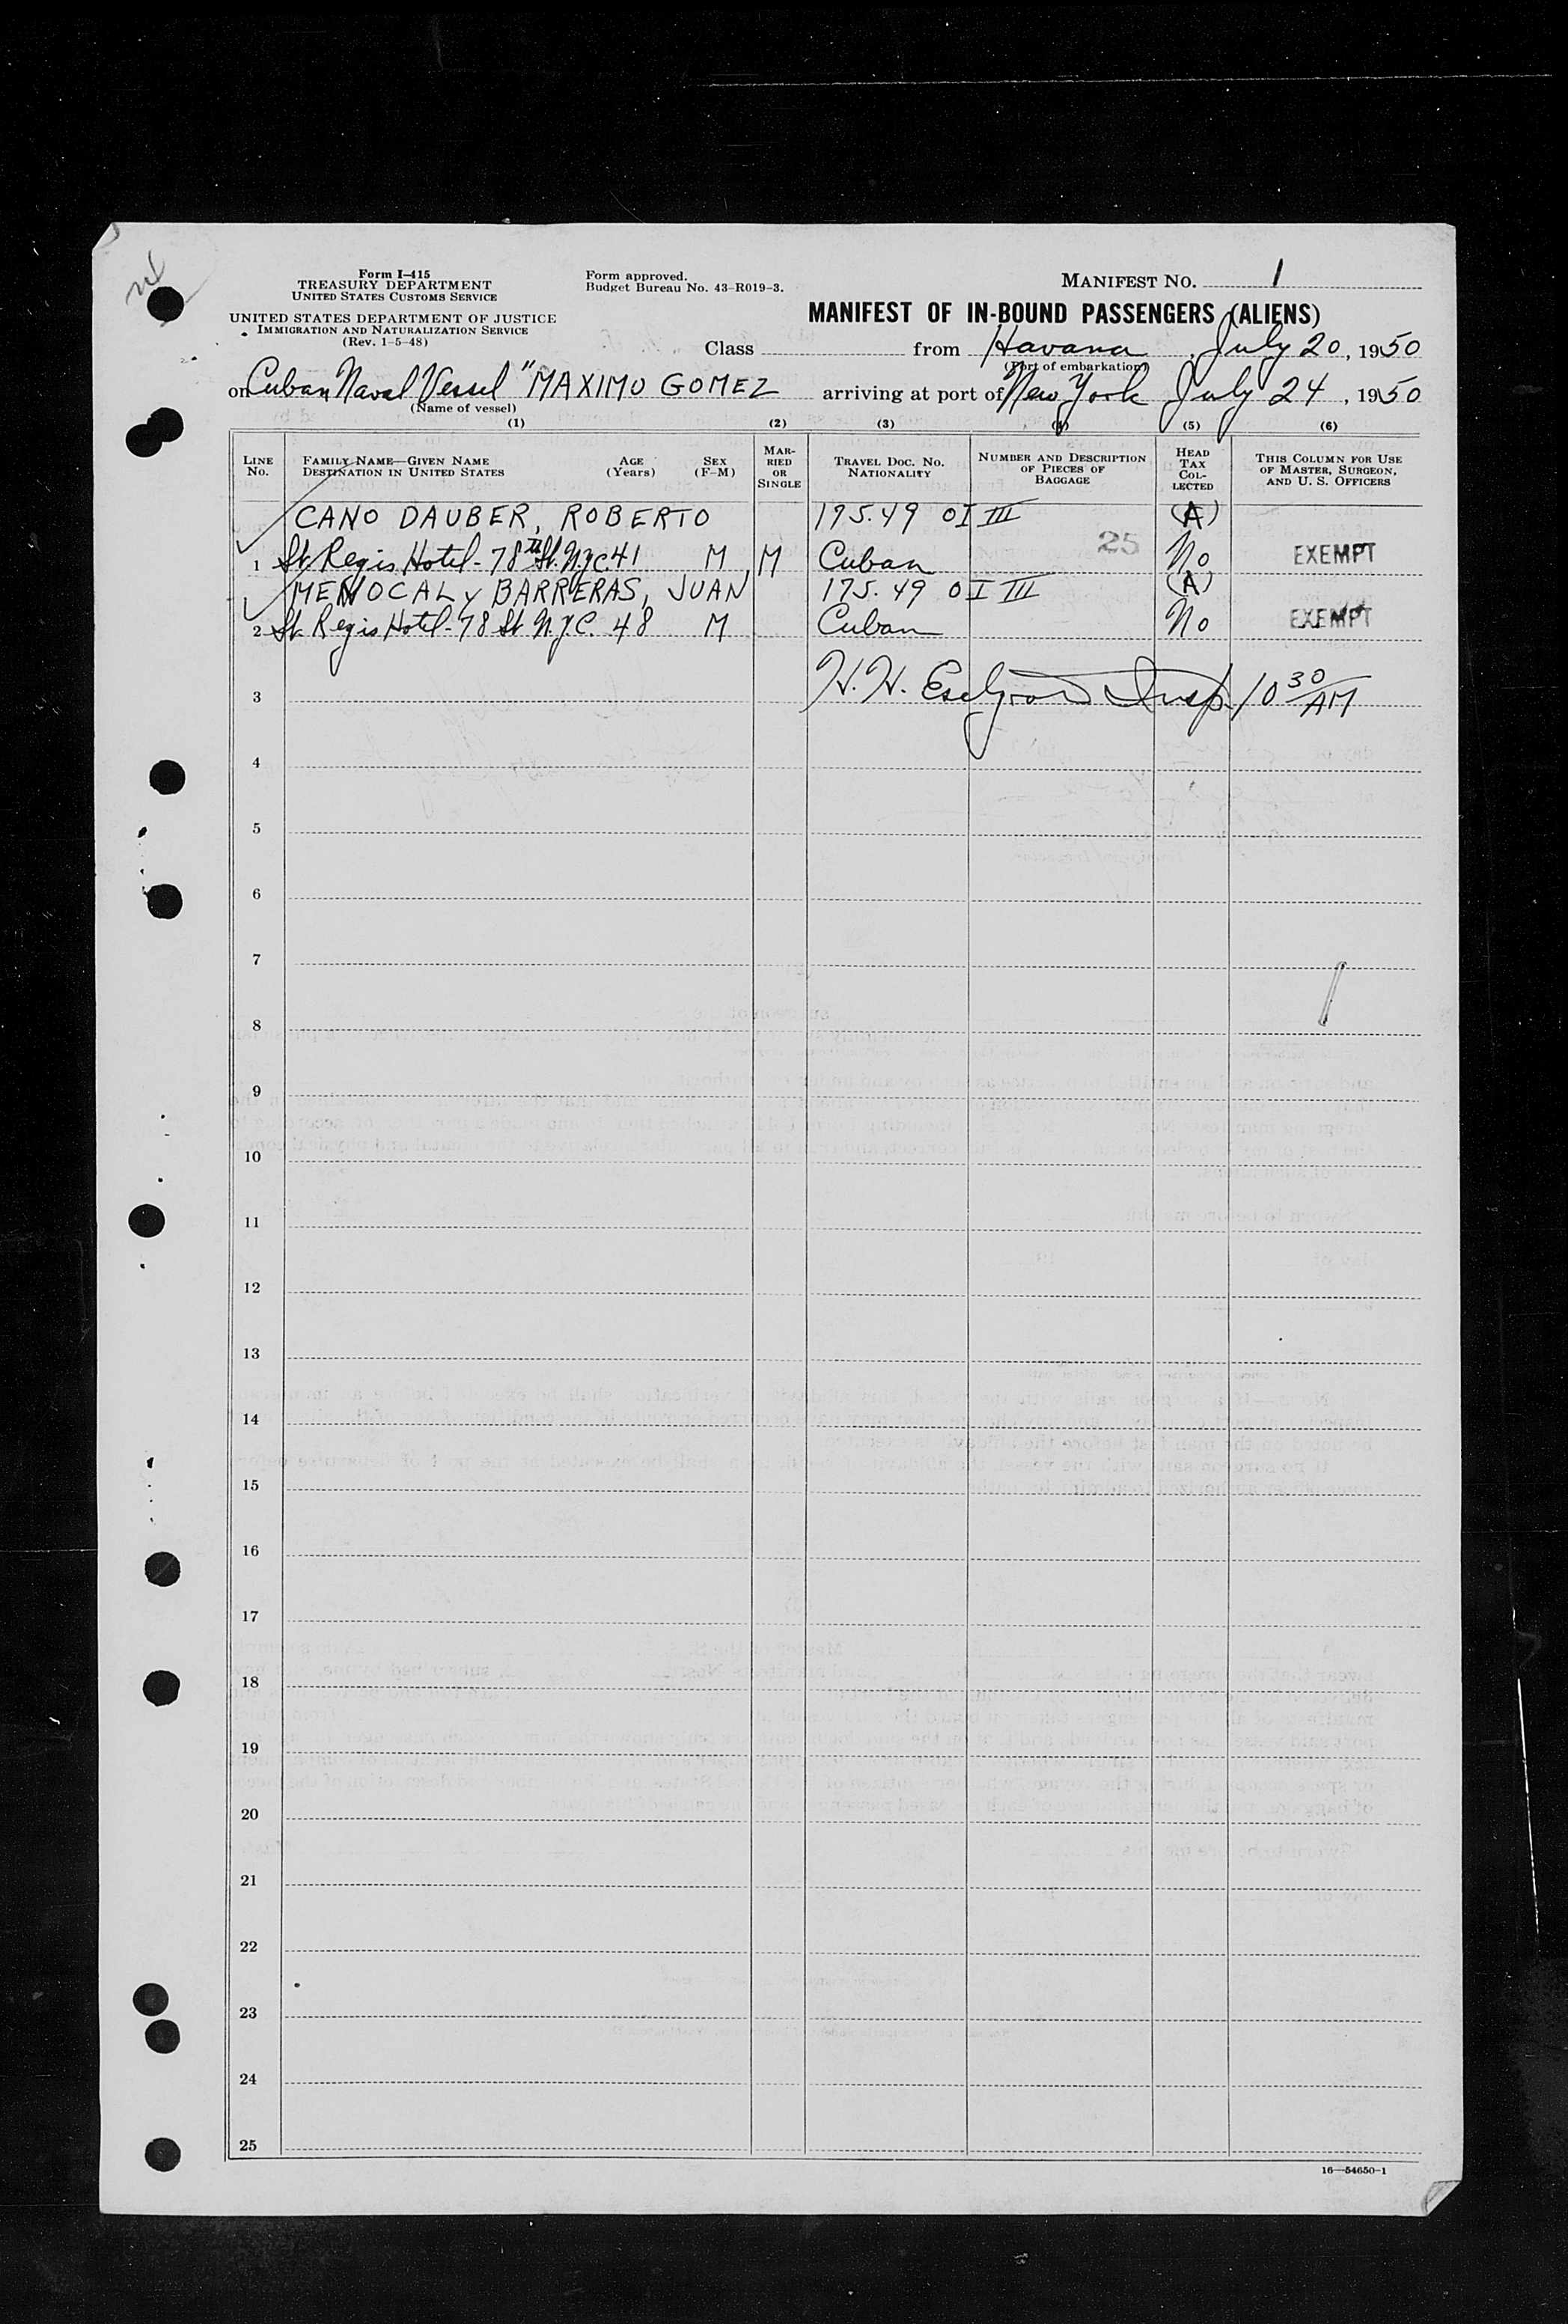 Form I-415
TREASURY DEPARTMENT
UNITED STATES CUSTOMS SERVICE
UNITED STATES DEPARTMENT OF JUSTICE
IMMIGRATION AND NATURALIZATION SERVICE
(Rev. 1-5-48)
Form approved.
Budget Bureau No. 43-R019-3.
MANIFEST NO. 1
MANIFEST OF IN-BOUND PASSENGERS (ALIENS)
Class from Havana, July 20, 1950
(Port of embarkation)
on Cuban Naval Vessel "MAXIMO GOMEZ arriving at port of New York July 24, 1950
(Name of vessel)
(1) (2) (3) (4) (5) (6)
LINE No. FAMILY NAME—GIVEN NAME DESTINATION IN UNITED STATES AGE (Years) SEX (F-M) MARRIED OR SINGLE TRAVEL DOC. NO. NATIONALITY NUMBER AND DESCRIPTION OF PIECES OF BAGGAGE HEAD TAX COLLECTED THIS COLUMN FOR USE OF MASTER, SURGEON, AND U. S. OFFICERS
CANO DAUBER, ROBERTO 175.49 OI III (A)
1 St. Regis Hotel - 78th St. N.Y.C. 41 M M Cuban 25 No EXEMPT
MENOCAL y BARRERAS, JUAN 175.49 O I III (A)
2 St. Regis Hotel - 78 St N.Y.C. 48 M Cuban No EXEMPT
3 H. H. Insp. 10 30 AM
4
5
6
7
8
9
10
11
12
13
14
15
16
17
18
19
20
21
22
23
24
25
16—54650-1